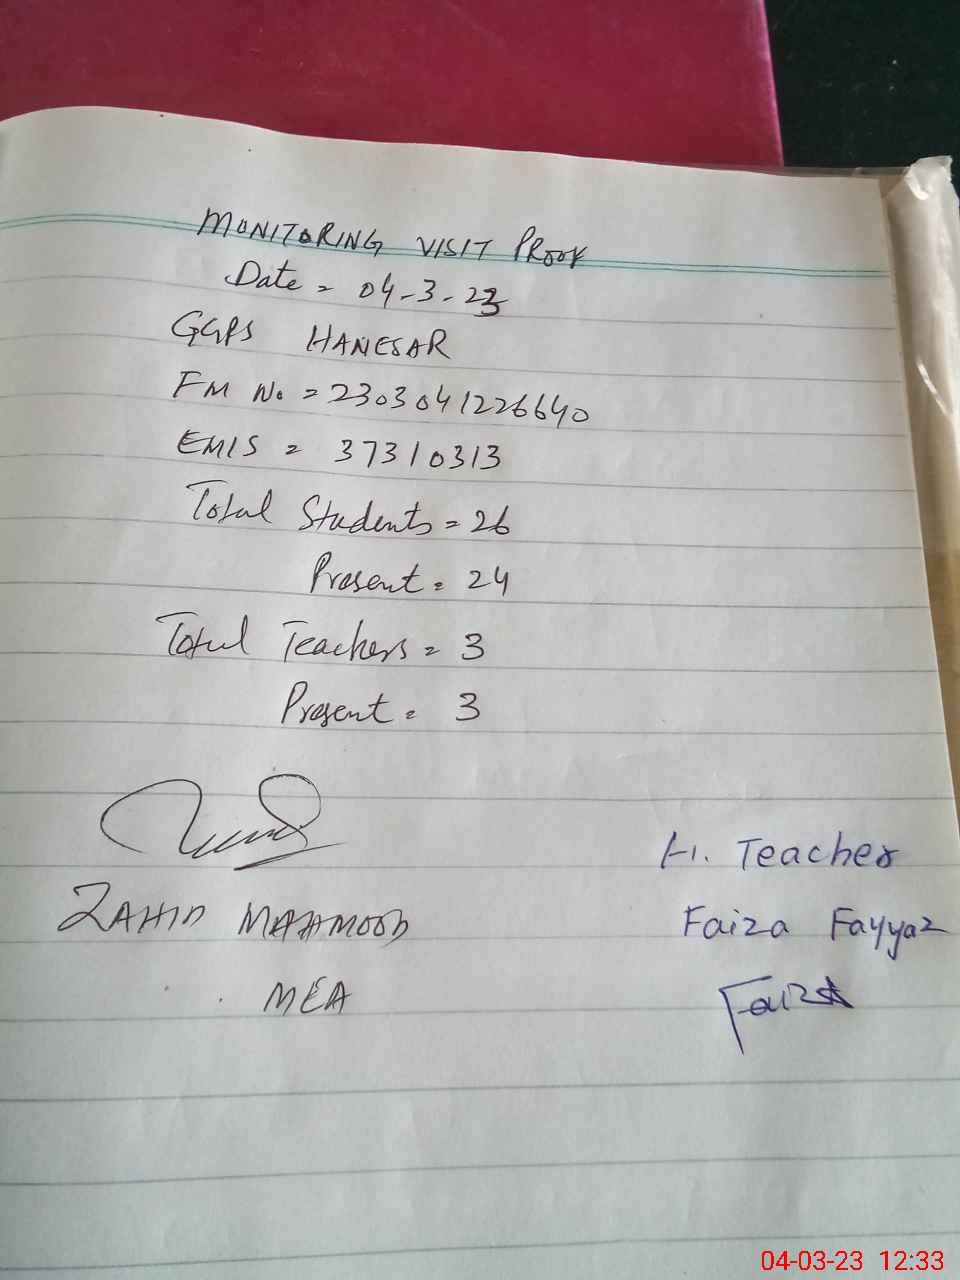 MONITORING VISIT PROOF
Date = 04-3-23
GGPS HANESAR
FM No. = 2303041226640
EMIS = 37310313
Total Students = 26
Present = 24
Total Teachers = 3
Present = 3
ZAHID MAHMOOD
MEA
H. Teacher
Faiza Fayyaz
Faiza
04-03-23 12:33